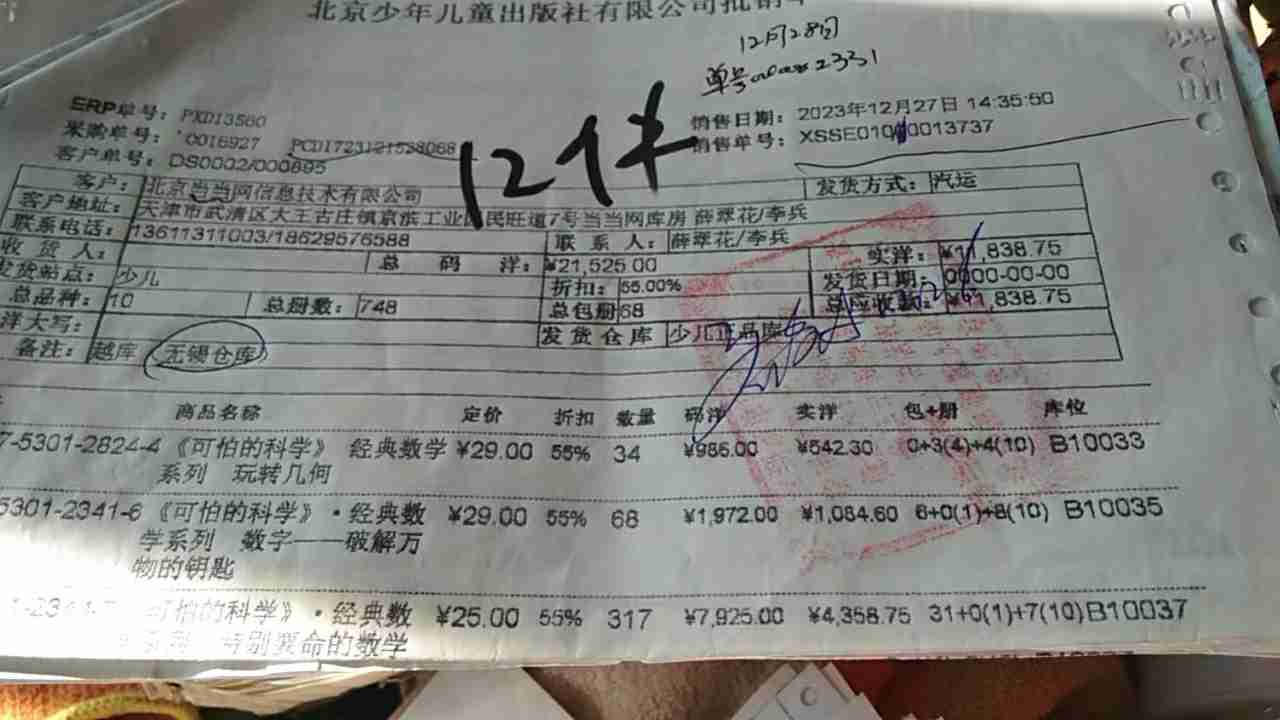 北京少年儿童出版社有限公司批销单
12月28日
单号 2331
ERP单号： PXD13560
采购单号： 0016927 PCD1723121528068
客户单号： DS0002/000895
12件
销售日期： 2023年12月27日 14:35:50
销售单号： XSSE010 0013737
客户： 北京当当网信息技术有限公司 发货方式： 汽运
客户地址： 天津市武清区大王古庄镇京滨工业区民旺道7号当当网库房 薛翠花/李兵
联系电话： 13611311003/18629576588 联系人： 薛翠花/李兵
收货人： 总码洋： ¥21,525.00 实洋： ¥11,838.75
发货站点： 少儿 折扣： 55.00% 发货日期： 0000-00-00
总品种： 10 总册数： 748 总包册 68 总应收款： ¥11,838.75
洋大写： 发货仓库 少儿正品库
备注： 越库 无锡仓库
商品名称 定价 折扣 数量 码洋 实洋 包+册 库位
7-5301-2824-4 《可怕的科学》 经典数学 ¥29.00 55% 34 ¥986.00 ¥542.30 0+3(4)+4(10) B10033
系列 玩转几何
5301-2341-6 《可怕的科学》·经典数 ¥29.00 55% 68 ¥1,972.00 ¥1,084.60 6+0(1)+8(10) B10035
学系列 数字——破解万
物的钥匙
1-2341- 可怕的科学》·经典数 ¥25.00 55% 317 ¥7,925.00 ¥4,358.75 31+0(1)+7(10) B10037
特别要命的数学